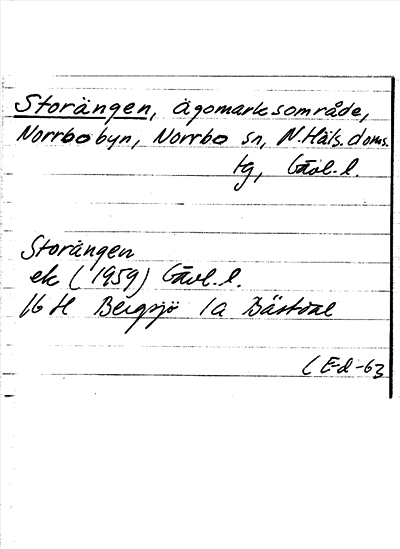 Storängen, ägomarksområde,
Norrbobyn, Norrbo sn, N.Häls.doms.
tg, Gävl.l.
Storängen
ek (1959) Gävl.l.
16 H Bergsjö 1a Bästdal
LE-d -63